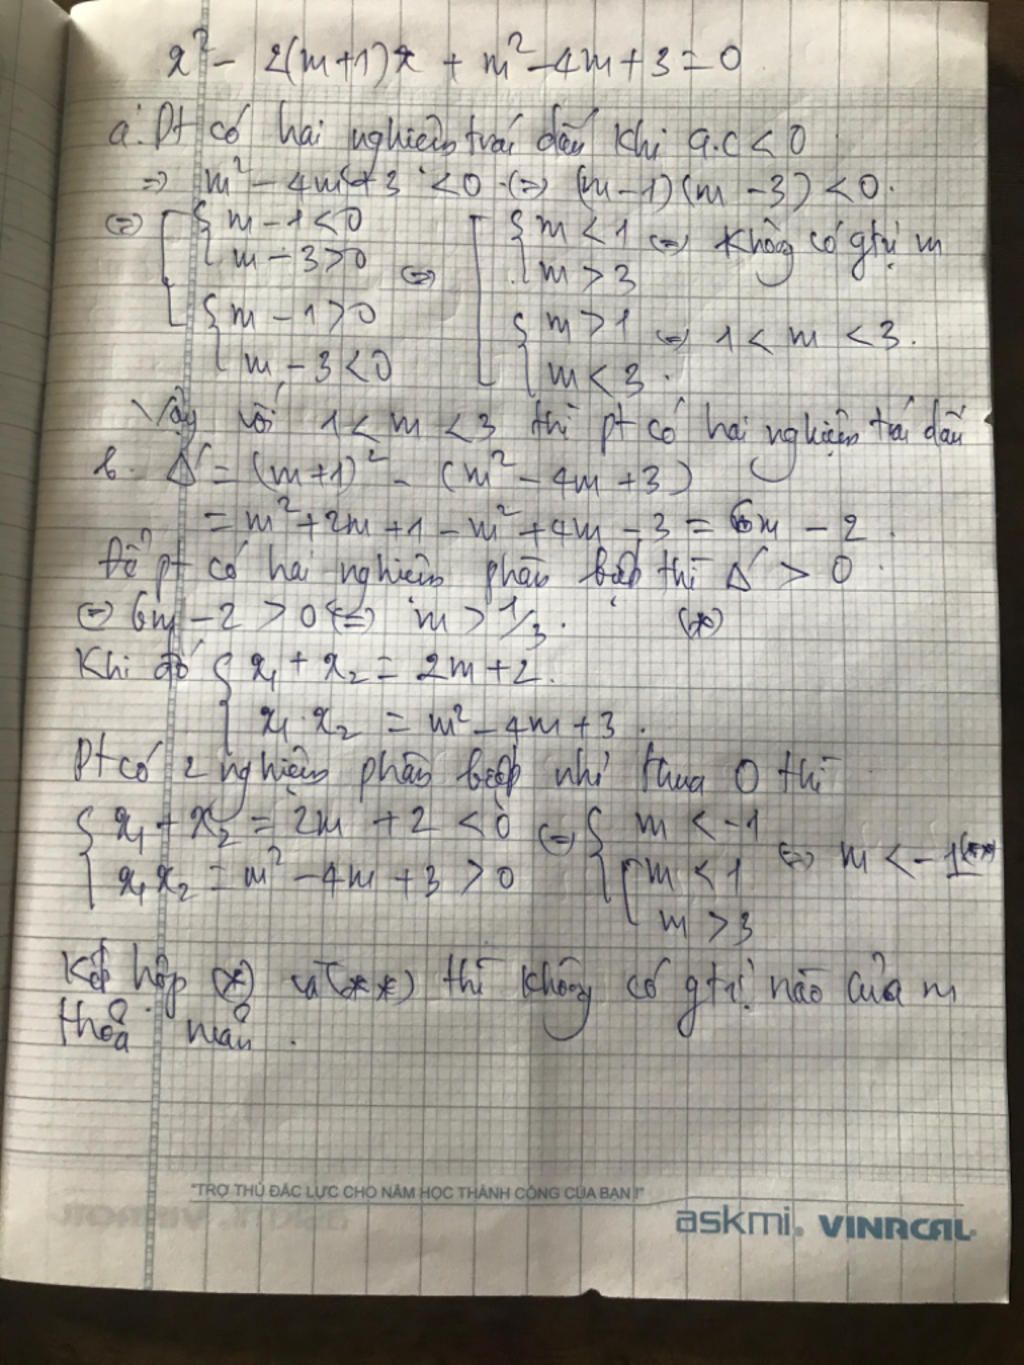 x² - 2(m+1)x + m² - 4m + 3 = 0
a. Pt có hai nghiệm trái dấu khi a.c < 0
=> m² - 4m + 3 < 0 <=> (m-1)(m-3) < 0.
<=> [ { m - 1 < 0 [ { m < 1 <=> Không có gtrị m
m - 3 > 0 <=> m > 3
{ m - 1 > 0 { m > 1 <=> 1 < m < 3.
m - 3 < 0 m < 3.
Vậy với 1 < m < 3 thì pt có hai nghiệm trái dấu
b. Δ' = (m+1)² - (m² - 4m + 3)
= m² + 2m + 1 - m² + 4m - 3 = 6m - 2.
Để pt có hai nghiệm phân biệt thì Δ' > 0.
<=> 6m - 2 > 0 <=> m > 1/3. (*)
Khi đó { x₁ + x₂ = 2m + 2.
x₁.x₂ = m² - 4m + 3.
Pt có 2 nghiệm phân biệt nhỏ thua 0 thì
{ x₁ + x₂ = 2m + 2 < 0 <=> { m < -1
x₁x₂ = m² - 4m + 3 > 0 [ m < 1 <=> m < -1 (**)
m > 3
Kết hợp (*) và (**) thì không có gtrị nào của m
thoả mãn.
"TRỢ THỦ ĐẮC LỰC CHO NĂM HỌC THÀNH CÔNG CỦA BẠN !"
askmi. VINACAL